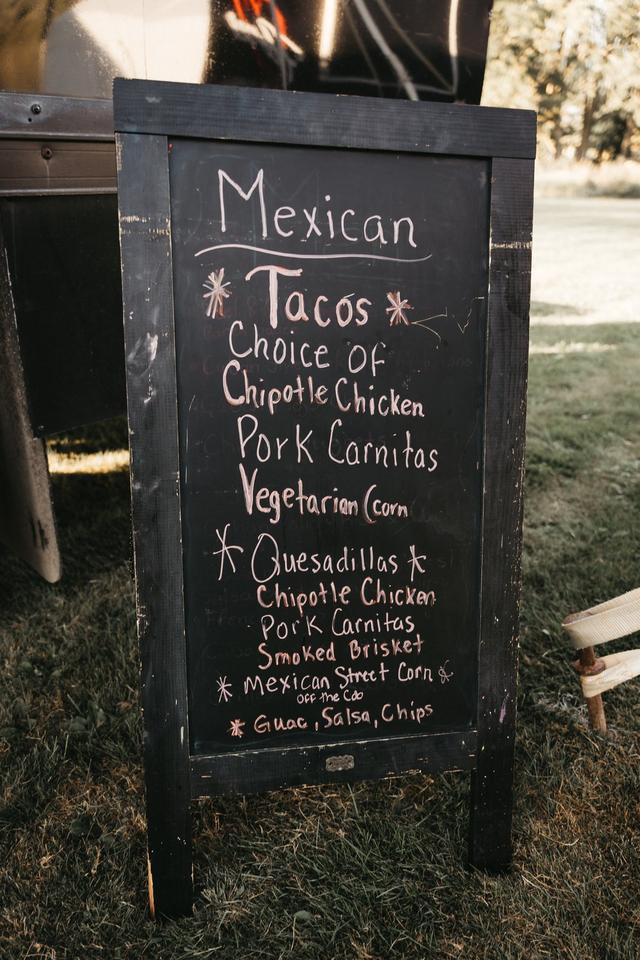 Mexican
* Tacos *
Choice Of
Chipotle Chicken
Pork Carnitas
Vegetarian (corn
* Quesadillas *
Chipotle Chicken
Pork Carnitas
Smoked Brisket
* Mexican Street Corn *
OFF the Cob
* Guac, Salsa, Chips